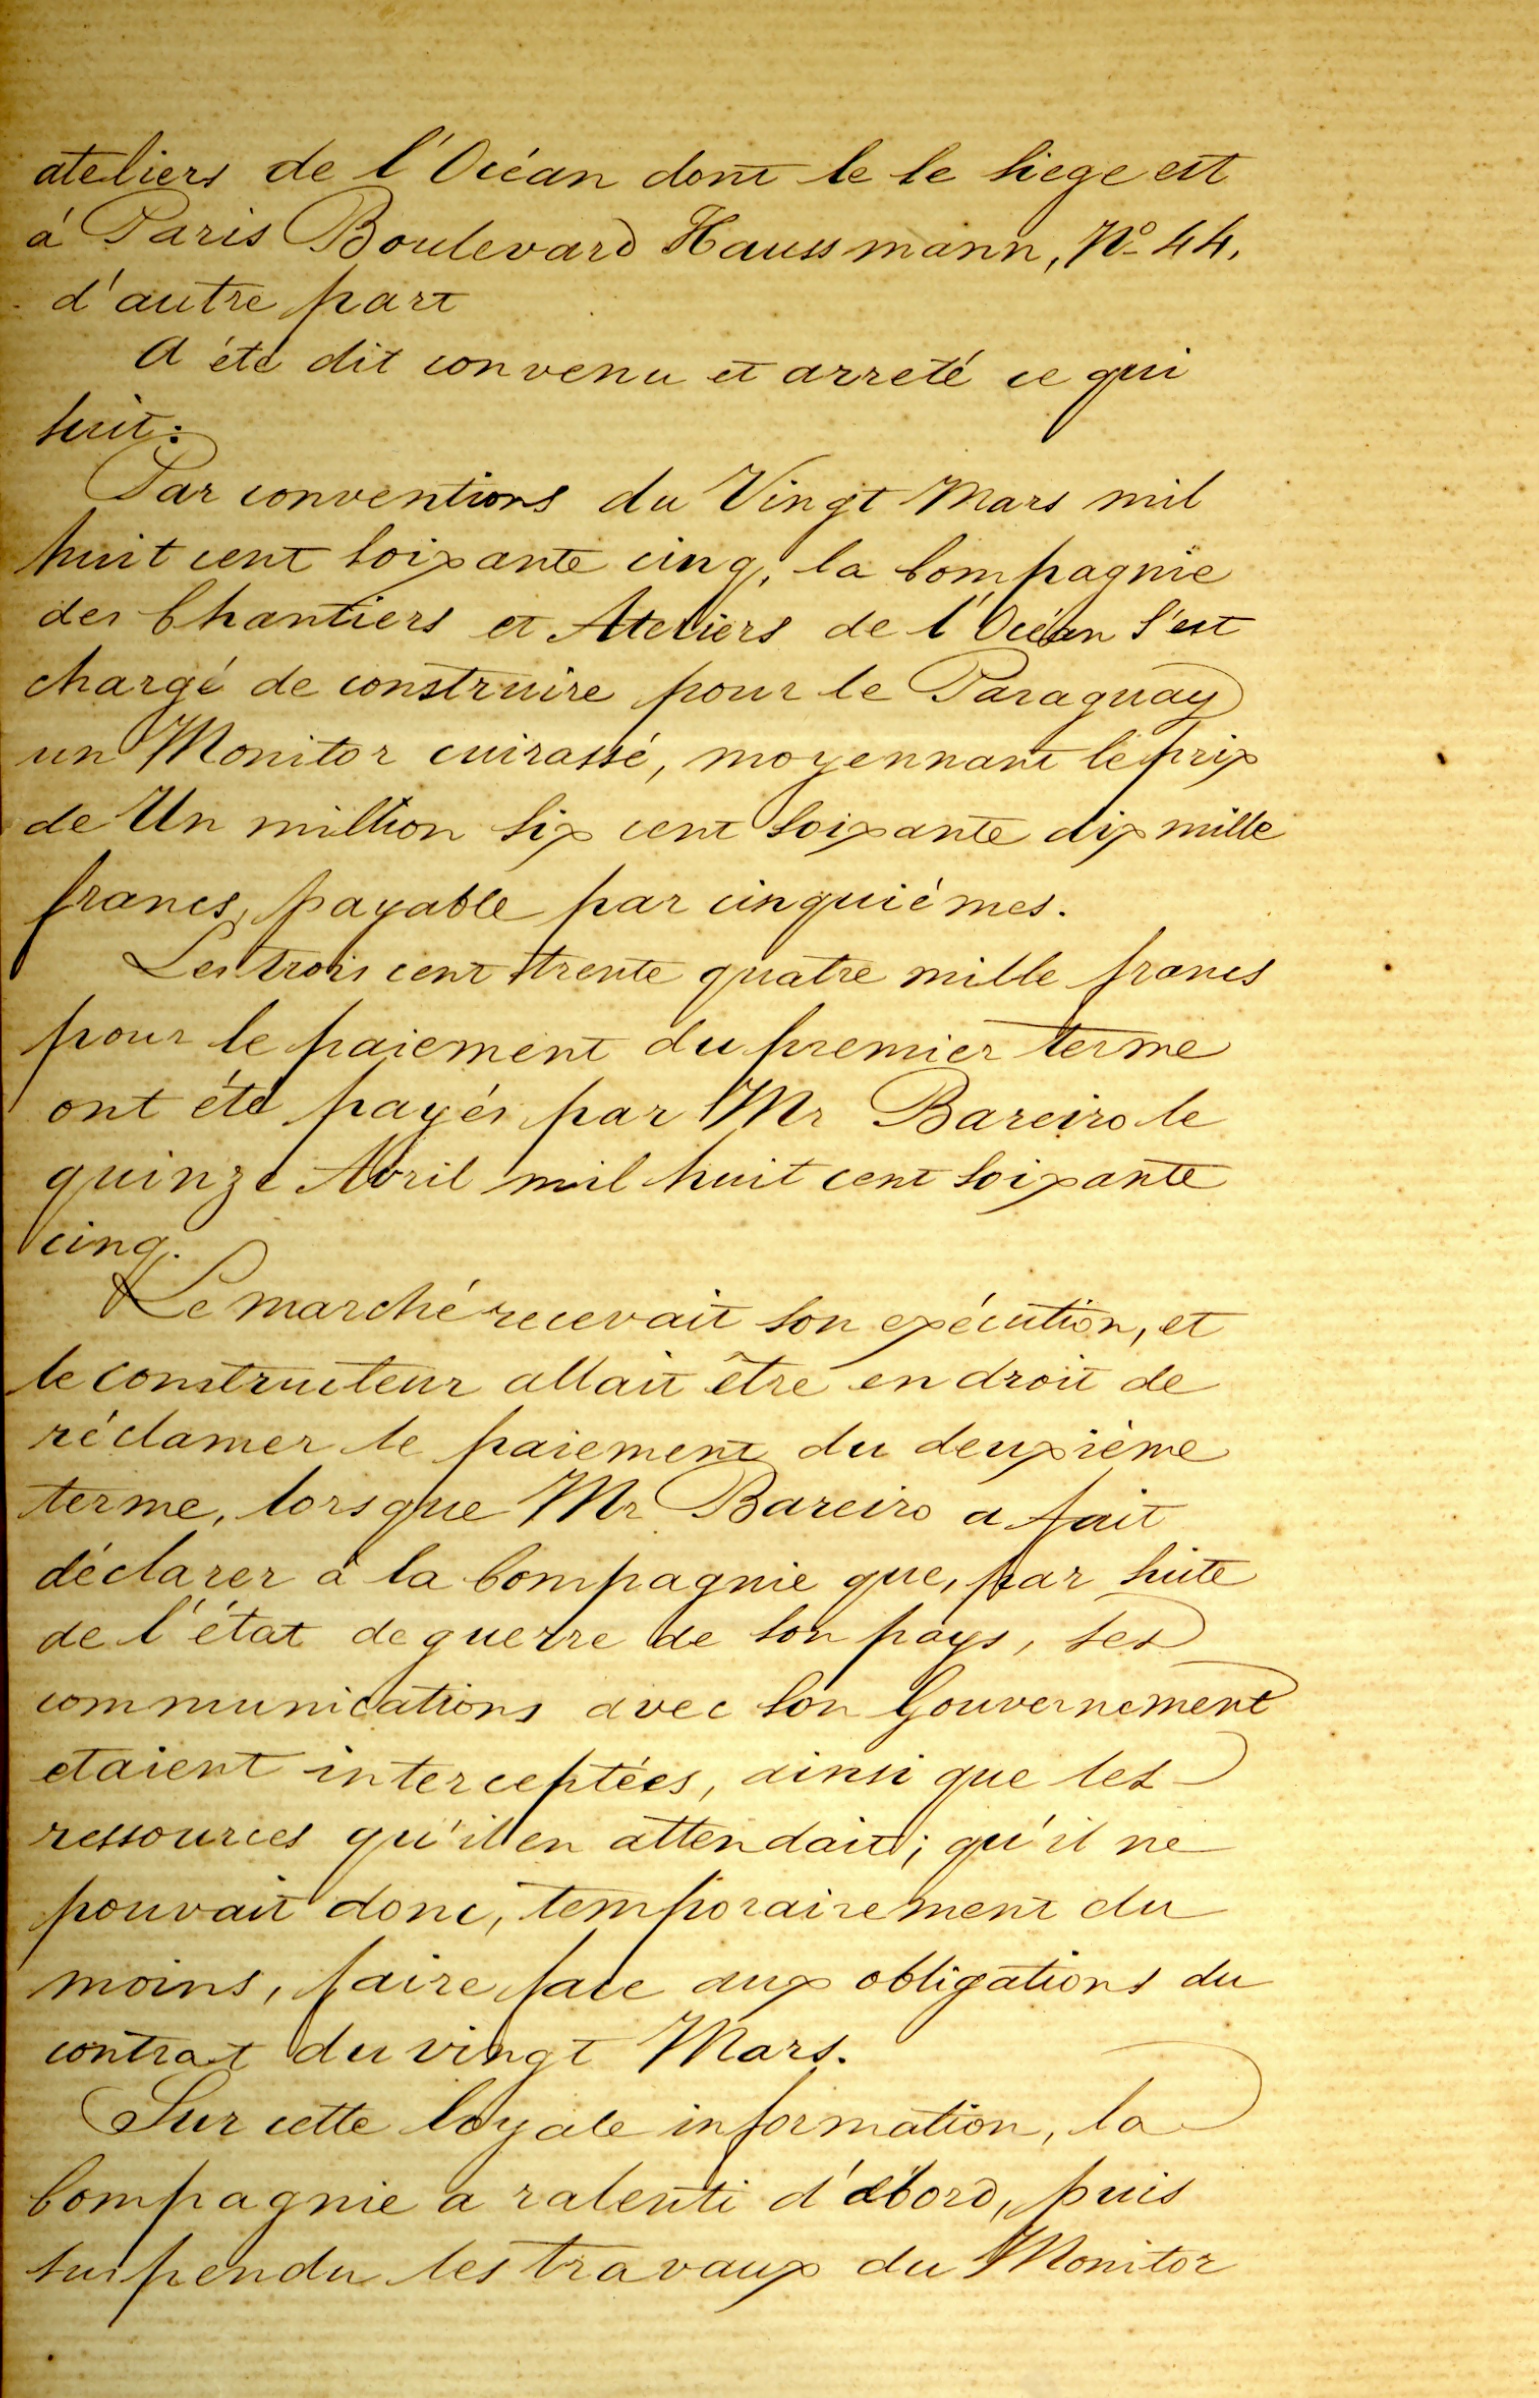 ateliers de l'Océan dont le le siege est
à Paris Boulevard Haussmann, Nº 44.
d'autre part
A été dit convenu et arreté ce qui
suit:
Par conventions du Vingt Mars mil
huit cent soixante cinq, la Compagnie
des Chantiers et Ateliers de l'Océan s'est
chargé de construire pour le Paraguay
un Monitor cuirassé, moyennant le prix
de Un million six cent soixante dix mille
francs, payable par cinquièmes.
Les trois cent trente quatre mille francs
pour le paiement du premier terme
ont été payés par Mr Bareiro le
quinze Avril mil huit cent soixante
cinq.
Le marché recevait son exécution, et
le constructeur allait être en droit de
réclamer le paiement du deuxième
terme, lorsque Mr Bareiro a fait
déclarer à la Compagnie que, par suite
de l'état de guerre de son pays, ses
communications avec son Gouvernement
etaient interceptées, ainsi que les
ressources qu'il en attendait; qu'il ne
pouvait donc, temporairement du
moins, faire face aux obligations du
contrat du vingt Mars.
Sur cette loyale information, la
Compagnie a ralenti d'abord, puis
suspendu les travaux du Monitor